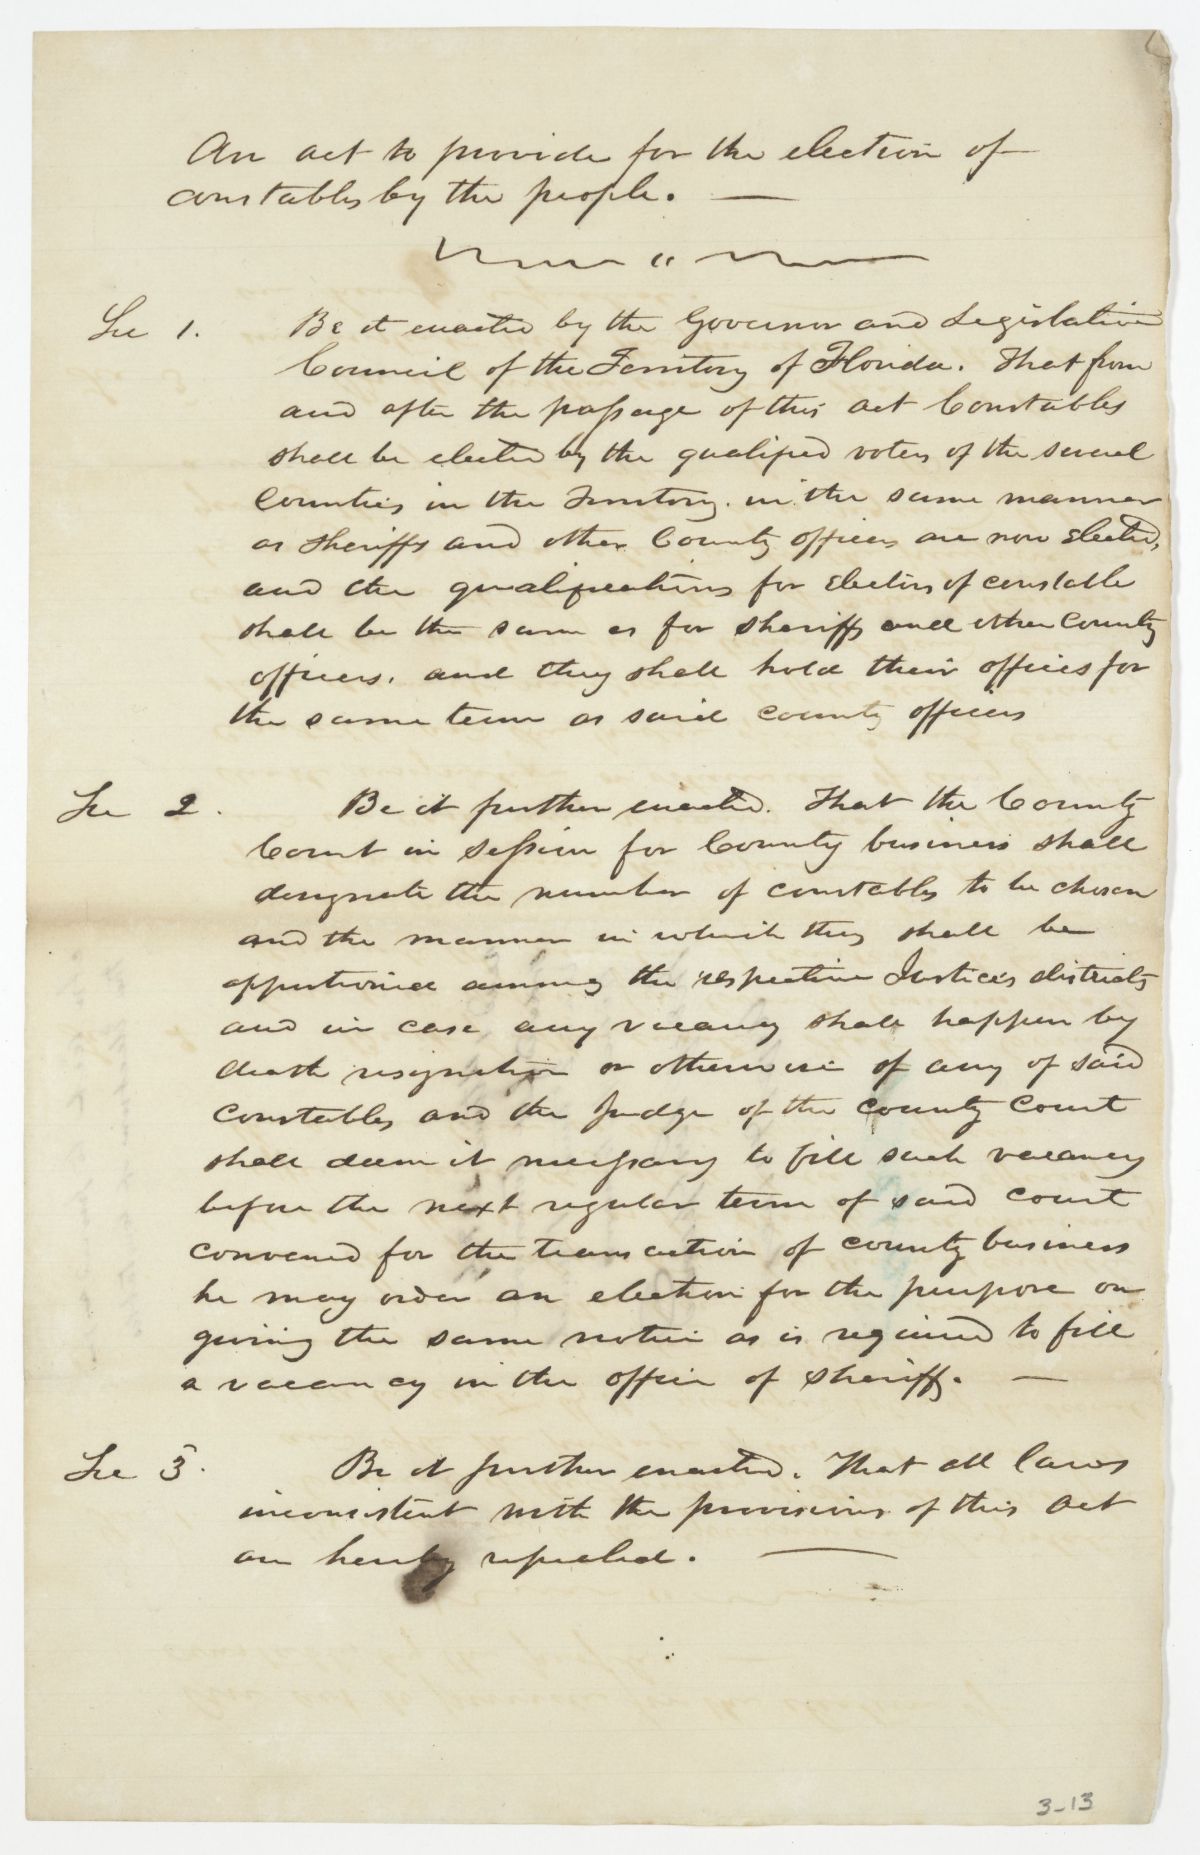 An act to provide for the election of
constables by the people. —
Sec 1. Be it enacted by the Governor and Legislative
Council of the Territory of Florida. That from
and after the passage of this act Constables
shall be elected by the qualified voters of the several
Counties in the Territory. in the same manner
as Sheriffs and other County officers are now Elected,
and the qualifications for Electors of constable
shall be the same as for Sheriffs and other County
officers. and they shall hold their offices for
the same term as said county officers
Sec 2. Be it further enacted. That the County
Court in Session for County business shall
designate the number of constables to be chosen
and the manner in which they shall be
apportioned among the respective Justices districts
and in case any vacancy shall happen by
death resignation or otherwise of any of said
Constables and the Judge of the county court
shall deem it necessary to fill such vacancy
before the next regular term of said court
convened for the transaction of county business
he may order an election for the purpose on
giving the same notice as is required to fill
a vacancy in the office of Sheriff. —
Sec 3. Be it further enacted. That all laws
inconsistent with the provisions of this act
are hereby repealed. —
3-13